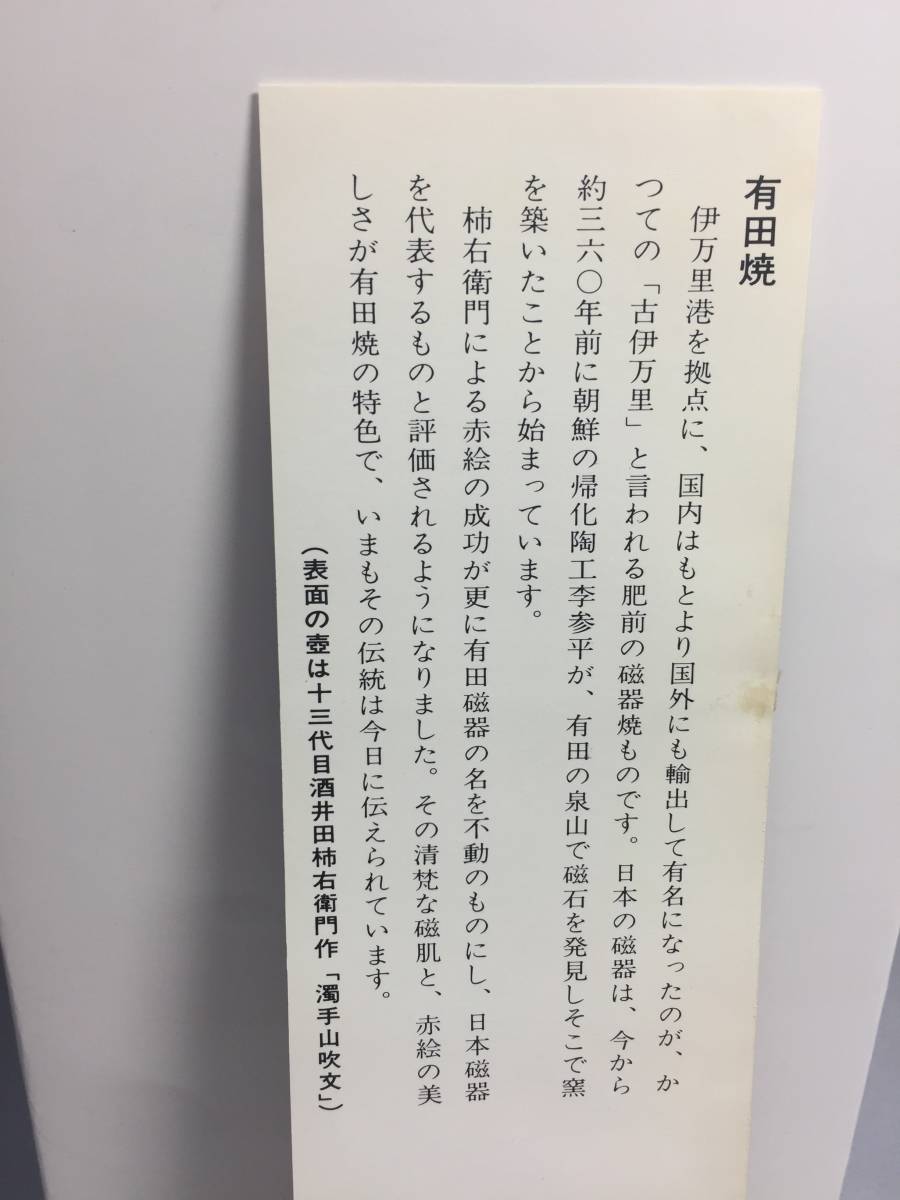 有田焼
伊万里港を拠点に、国内はもとより国外にも輸出して有名になったのが、か
つての「古伊万里」と言われる肥前の磁器焼ものです。日本の磁器は、今から
約三六〇年前に朝鮮の帰化陶工李参平が、有田の泉山で磁石を発見しそこで窯
を築いたことから始まっています。
柿右衛門による赤絵の成功が更に有田磁器の名を不動のものにし、日本磁器
を代表するものと評価されるようになりました。その清梵な磁肌と、赤絵の美
しさが有田焼の特色で、いまもその伝統は今日に伝えられています。
(表面の壺は十三代目酒井田柿右衛門作「濁手山吹文」)